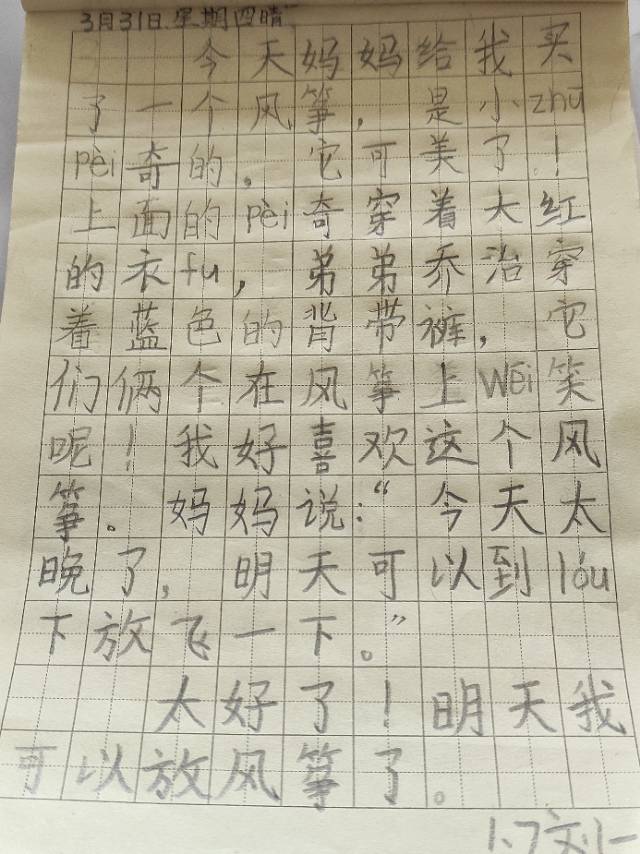 3月31日.星期四晴
今天妈妈给我买
了一个风筝，是小zhū
pèi奇的。它可美了！
上面的pèi奇穿着大红
的衣fu，弟弟乔治穿
着蓝色的背带裤，它
们俩个在风筝上Wēi笑
呢！我好喜欢这个风
筝。妈妈说：“今天太
晚了，明天可以到lóu
下放飞一下。”
太好了！明天我
可以放风筝了。